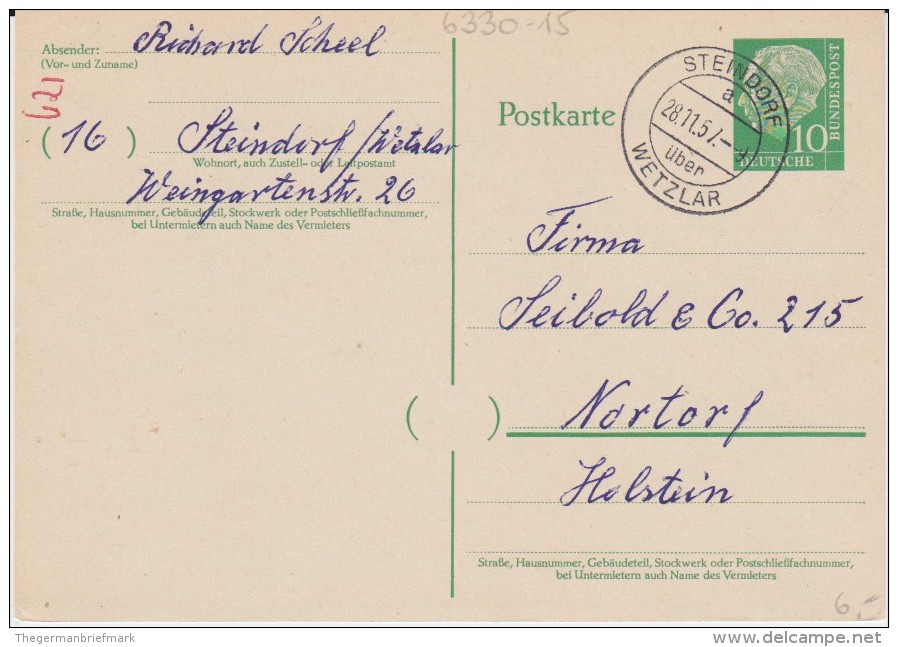 6330-15
Absender: Richard Scheel
(Vor- und Zuname)
621
(16) Steindorf/Wetzlar
Wohnort, auch Zustell- oder Leitpostamt
Weingartenstr. 26
Straße, Hausnummer, Gebäudeteil, Stockwerk oder Postschließfachnummer,
bei Untermietern auch Name des Vermieters
Postkarte
STEINDORF
a
28.11.57.-9
über
WETZLAR
10
DEUTSCHE
BUNDESPOST
Firma
Seibold & Co. 215
( )
Nortorf
Holstein
Straße, Hausnummer, Gebäudeteil, Stockwerk oder Postschließfachnummer,
bei Untermietern auch Name des Vermieters
6,-
Thegermanbriefmark
www.delcampe.net